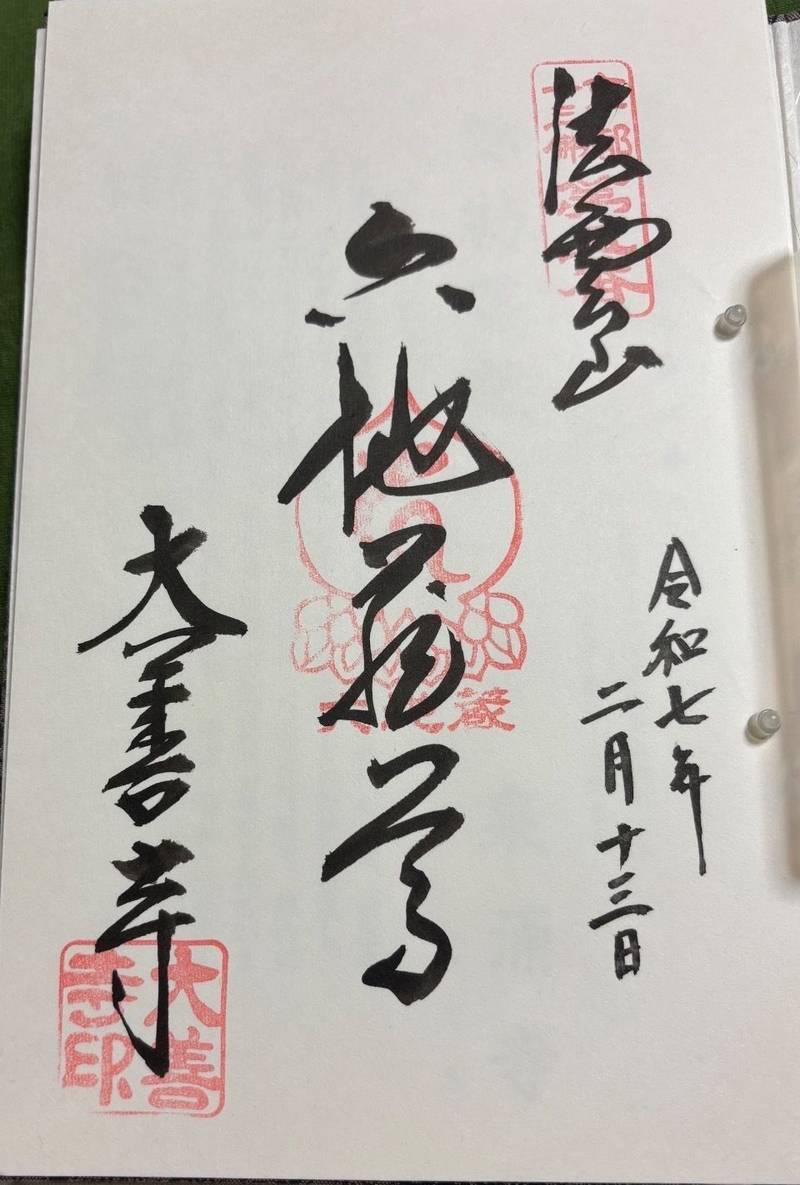 法雲山
令和七年
二月十三日
六地蔵尊
六地蔵
大善寺
大善寺印